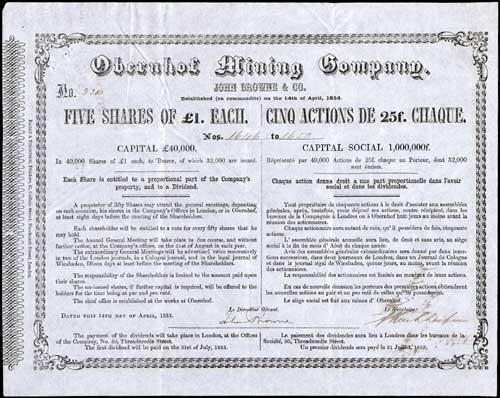 Obernhof Mining Company.
JOHN BROWNE & CO.
Established (en commandite) on the 14th of April, 1853.
No.
FIVE SHARES OF £1. EACH.
CINQ ACTIONS DE 25f. CHAQUE.
Nos. 1646 to 1650
CAPITAL £40,000.
In 40,000 Shares of £1 each, to Bearer, of which 32,000 are issued.
Each Share is entitled to a proportional part of the Company's
property, and to a Dividend.
A proprietor of fifty Shares may attend the general meetings, depositing
on such occasion, his shares in the Company's Offices in London, or in Obernhof,
at least eight days before the meeting of the Shareholders.
Each shareholder will be entitled to a vote for every fifty shares that he
may hold.
The Annual General Meeting will take place in due course, and without
further notice, at the Company's offices, on the 31st of August in each year.
The extraordinary General Meetings will be advertized twice successively
in two of the London journals, in a Cologne journal, and in the legal journal of
Wiesbaden, fifteen days at least before the meeting of the Shareholders.
The responsibility of the Shareholders is limited to the amount paid upon
their shares.
The un-issued shares, if further capital is required, will be offered to the
holders for the time being at par and pro ratâ.
The chief office is established at the works at Obernhof.
DATED THIS 14TH OF APRIL, 1853.
Le Directeur Gérant.
John Browne
The payment of the dividends will take place in London, at the Offices
of the Company, No. 50, Threadneedle Street.
The first dividend will be paid on the 31st of July, 1853.
CAPITAL SOCIAL 1,000,000f.
Représenté par 40,000 Actions de 25f. chaque au Porteur, dont 32,000
sont émises.
Chaque action donne droit a une part proportionelle dans l'avoir
social et dans les dividendes.
Tout propriétaire de cinquante actions à le droit d'assister aux assemblées
générales, après, toutefois, avoir déposé ses actions, contre récépissé, dans les
bureaux de la Compagnie à Londres ou à Obernhof huit jours au moins avant la
réunion des actionnaires.
Chaque actionnaire aura autant de voix, qu'il possédera de fois, cinquante
actions.
L'assemblée générale annuelle aura lieu, de droit et sans avis, au siége
social à la fin du mois d'Aout de chaque année.
Avis des assemblées extraordinaires sera donné par deux insertions
successives, dans deux journaux de Londres, dans un Journal de Cologne
et dans le journal légal de Wiesbaden, quinze jours, au moins, avant la réunion
des actionnaires.
La responsabilité des actionnaires est limitée au montant de leurs actions.
En cas de nouvelle émission les porteurs des premières actions obtiendront les
nouvelles actions au pair et au pro ratâ de celles qu'ils possèdent.
Le siége social est fixé aux mines d'Obernhof.
Le paiement des dividendes aura lieu à Londres dans les bureaux de la
Société, 50, Threadneedle Street.
Un premier dividende sera payé le 31 Juillet, 1853.